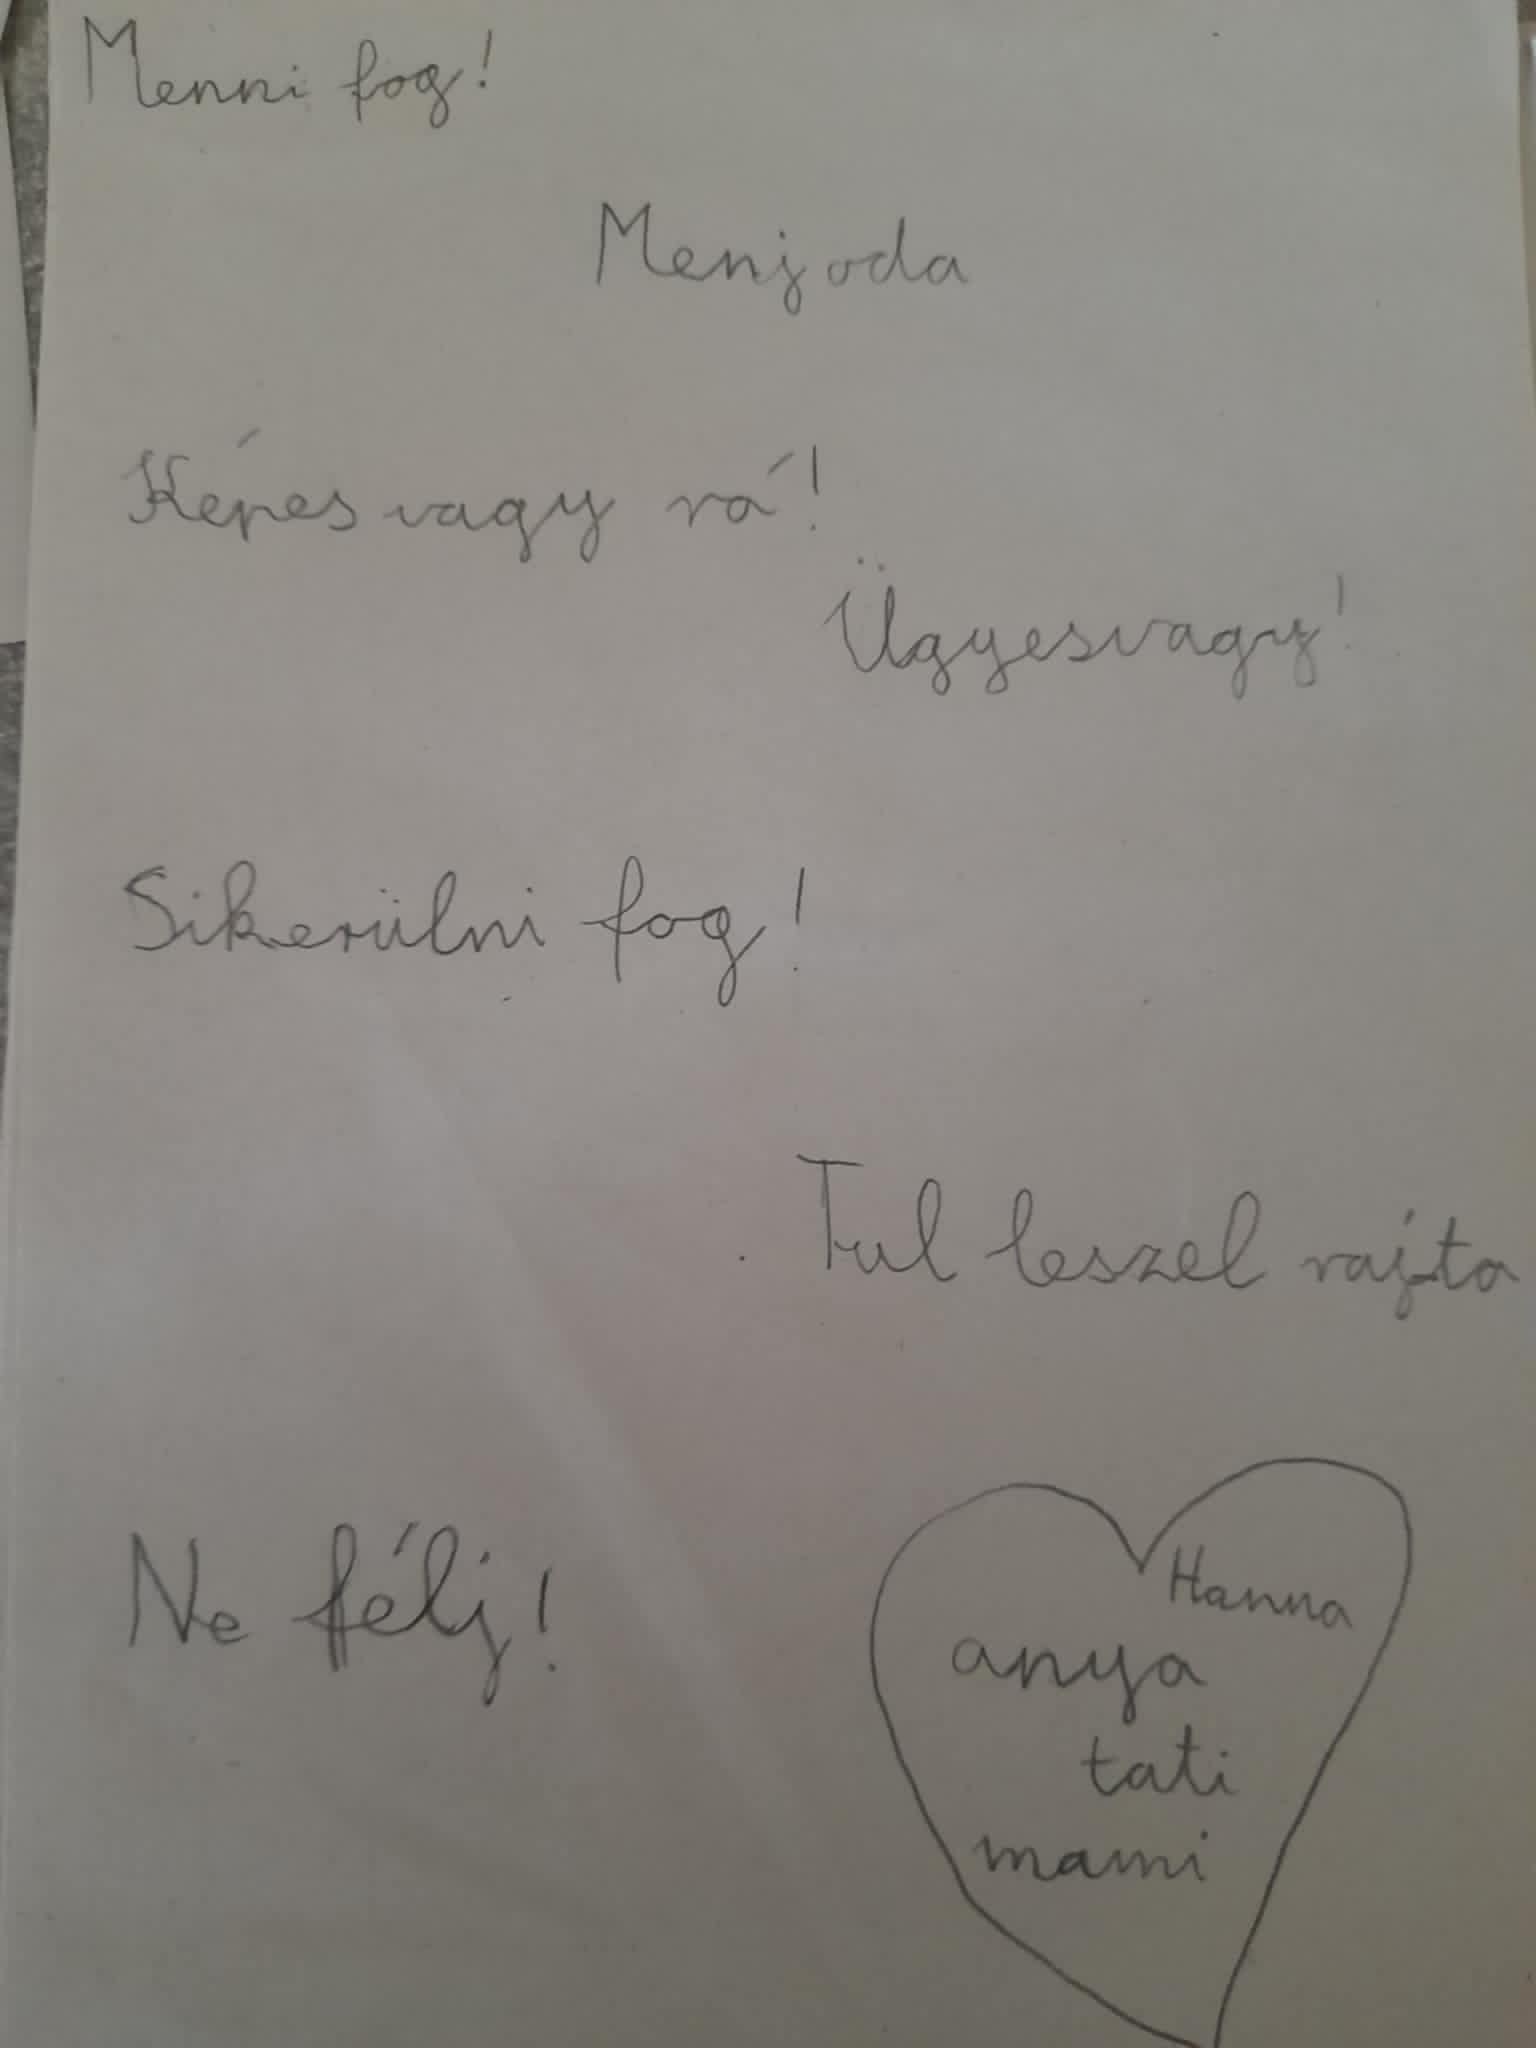 Menni fog!
Menj oda
Képes vagy rá!
Ügyesvagy!
Sikerülni fog!
Tul leszel rajta
Ne félj!
Hanna
anya
tati
mami